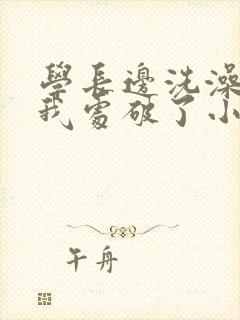 學長邊洗澡
我處破了小
午舟